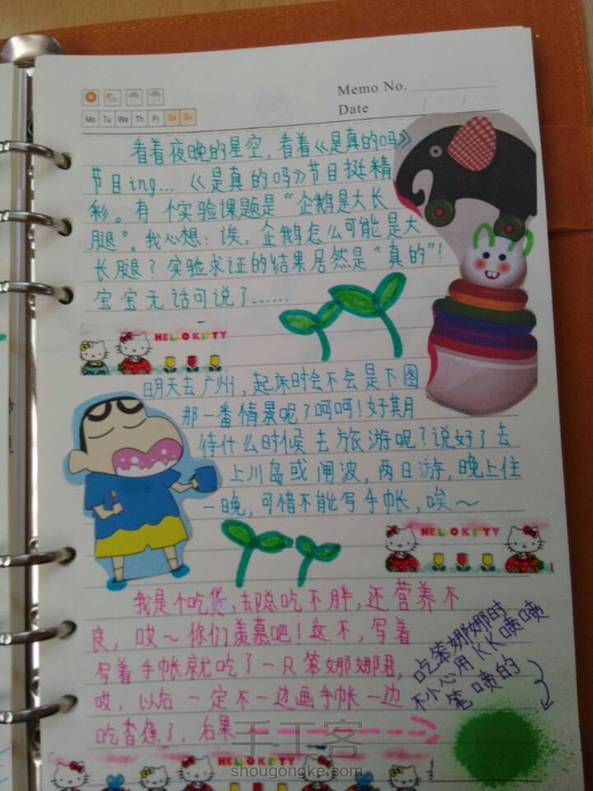 Memo No.
Date
Mo Tu We Th Fr Sa Su
看着夜晚的星空,看着《是真的吗》
节目ing... 《是真的吗》节目挺精
彩。有个实验课题是“企鹅是大长
腿”。我心想:诶,企鹅怎么可能是大
长腿?实验求证的结果居然是“真的”!
宝宝无话可说了……
HELLO KITTY
明天去广州,起床时会不会是下图
那一番情景呢?呵呵!好期
待什么时候去旅游呢?说好了去
上川岛或闸波,两日游,晚上住
一晚,可惜不能写手帐,唉~
HELLO KITTY
我是个吃货,却总吃不胖,还营养不
良,哎~你们羡慕吧!这不,写着
写着手帐就吃了一只笨娜娜君,
哎,以后一定不一边画手帐一边
吃香蕉了,后果
吃笨娜娜时
不小心用KK喷喷
笔喷的
HELLO KITTY
手工客
shougongke.com